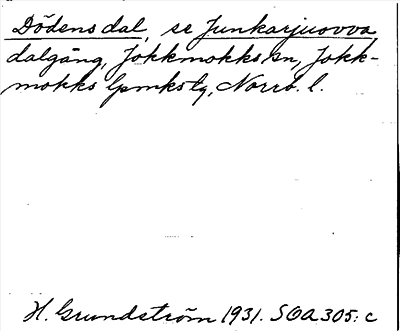 Dödens dal, se Junkarjuovva,
dalgång, Jokkmokks sn, Jokk-
mokks lpmkstg, Norrb. l.
H. Grundström 1931. SOA 305: c